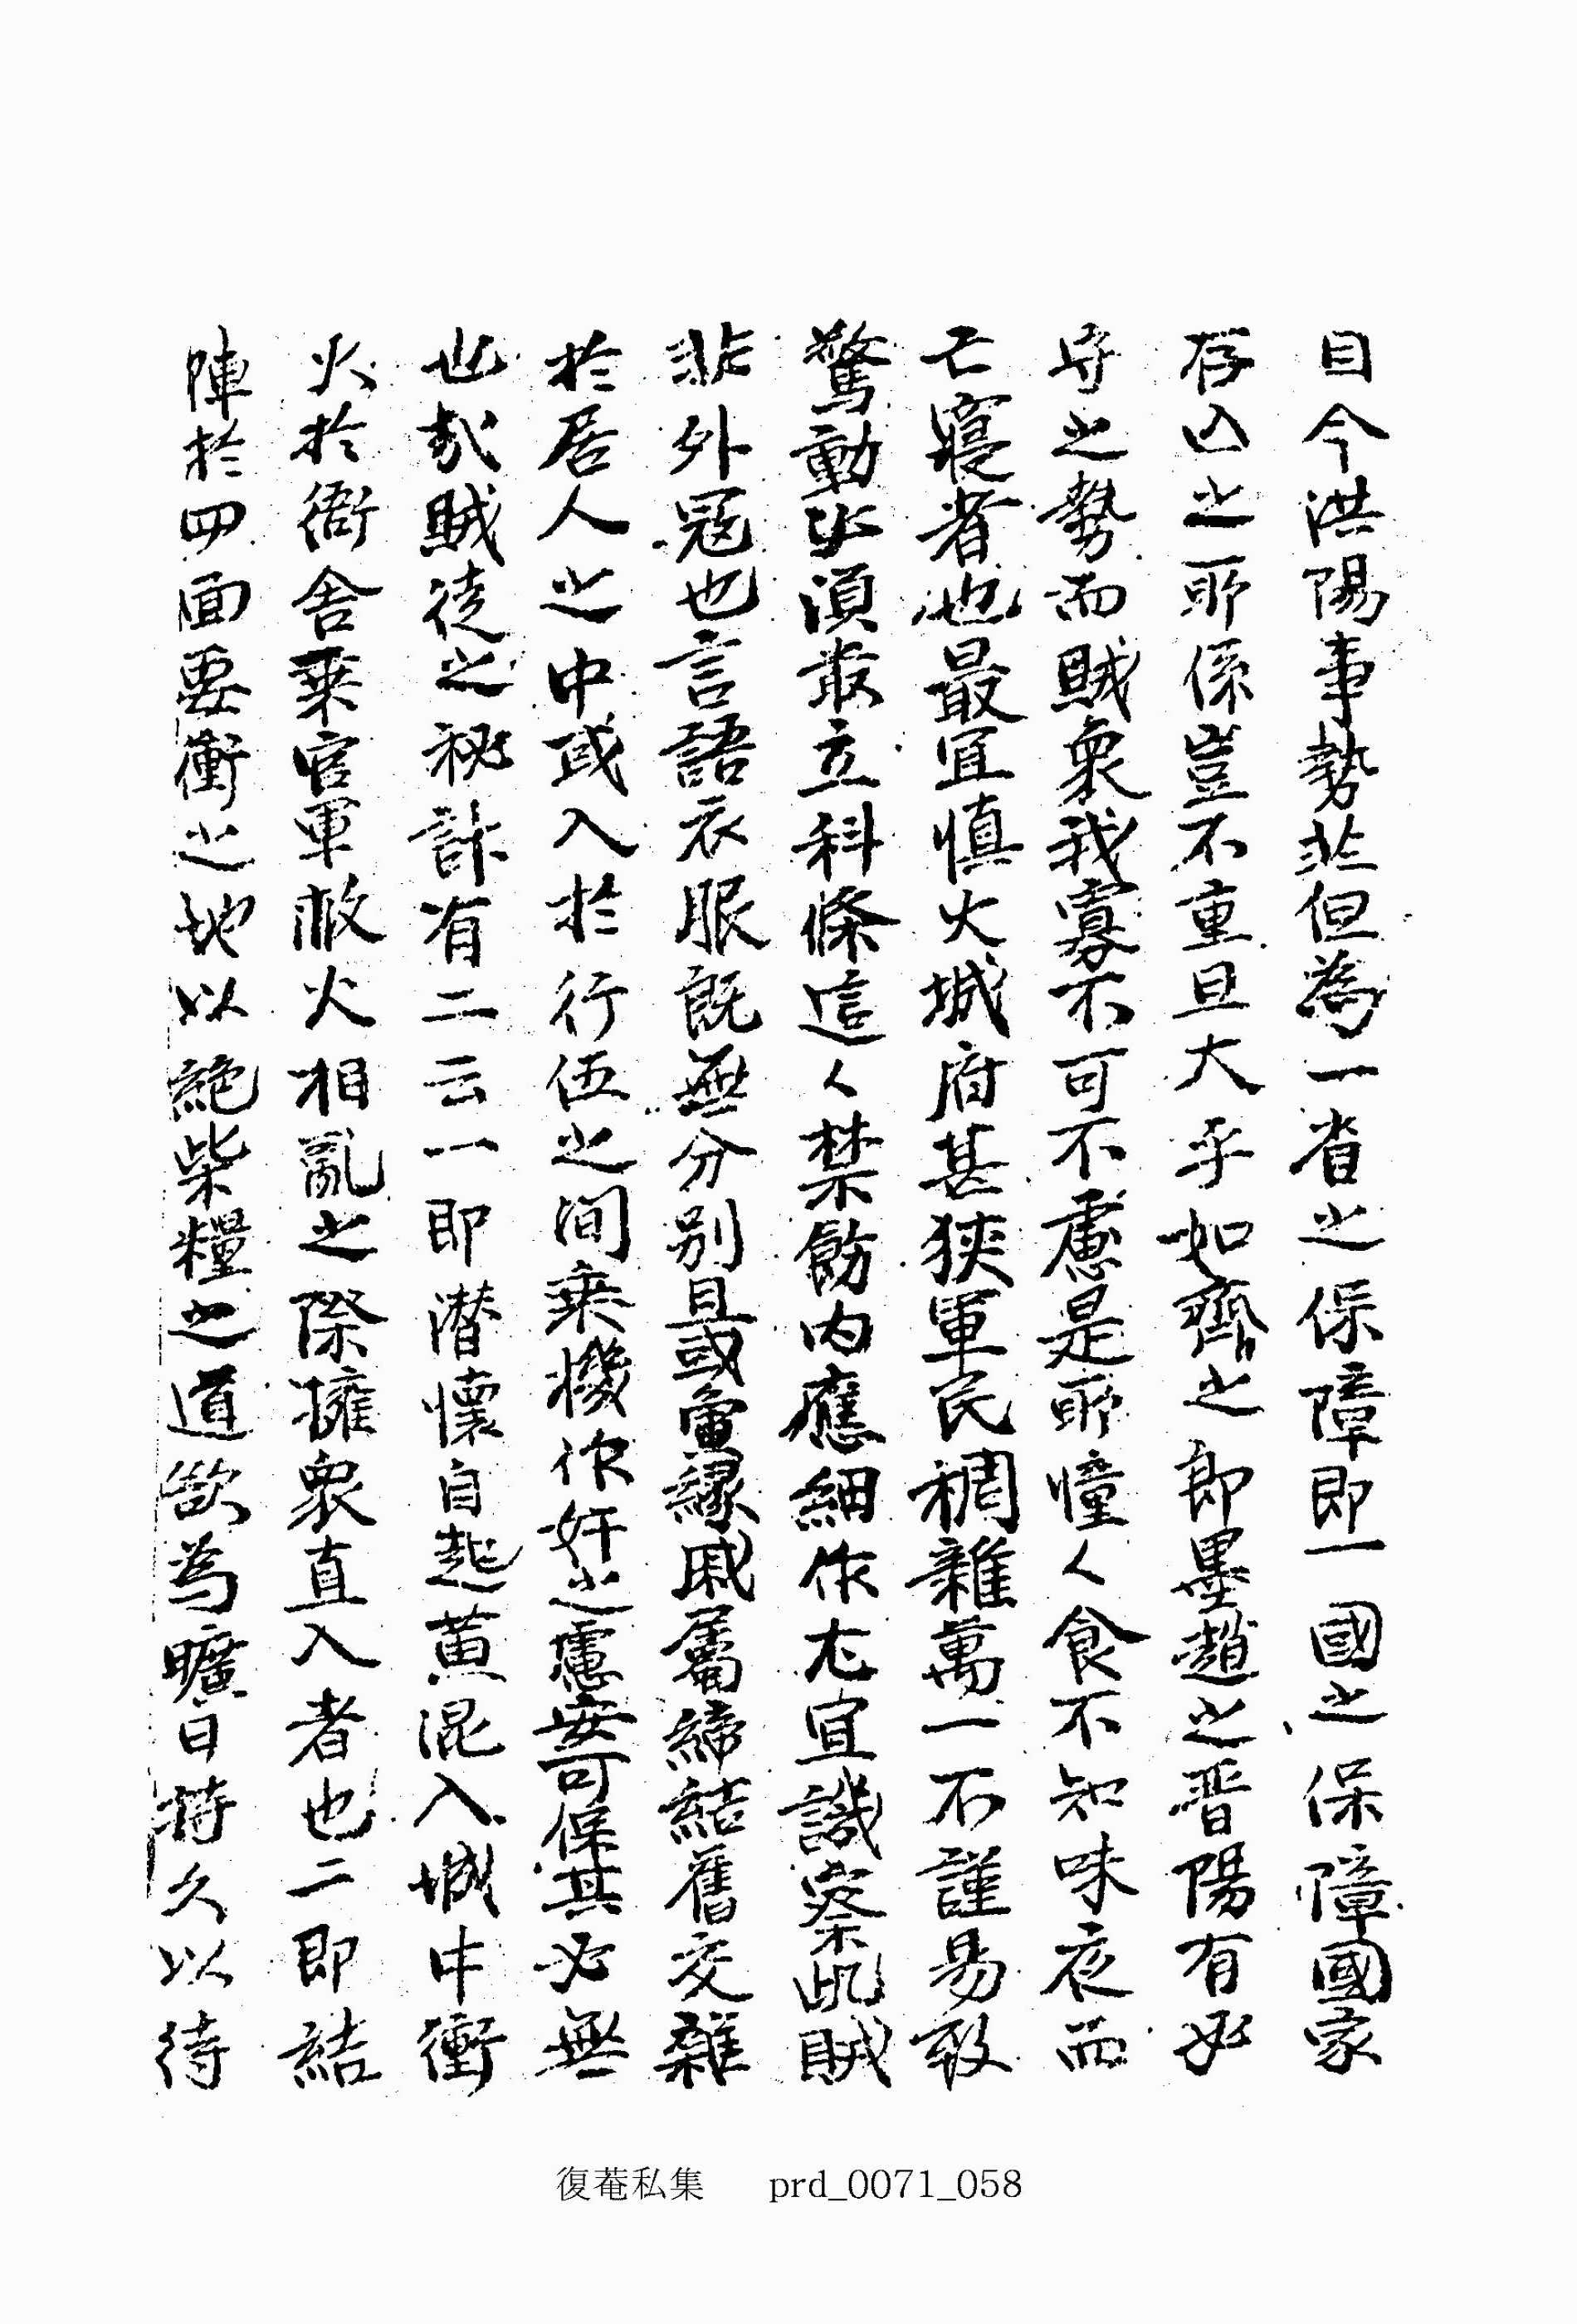 目今洪陽事勢非但為一省之保障即一國之保障國家
存亡之所係豈不重且大乎如齊之即墨趙之晋陽有必
守之勢而賊衆我寡不可不慮是所憧々食不知味夜而
亡寢者也最宜慎火城府甚狹軍民稠雜萬一不謹易致
驚動必須嚴立科條這々禁飭內應細作尤宜譏察此賊
非外冦也言語衣服旣無分別且或夤緣戚屬締結舊交雜
於居人之中或入於行伍之間乘機作奸之慮安可保其必無
也哉賊徒之秘計有二云一即潜懷自起黃混入城中衝
火於衙舍乘官軍救火相亂之際擁衆直入者也二即結
陣於四面要衝之地以絶柴糧之道欲為曠日持久以待
復菴私集 prd_0071_058